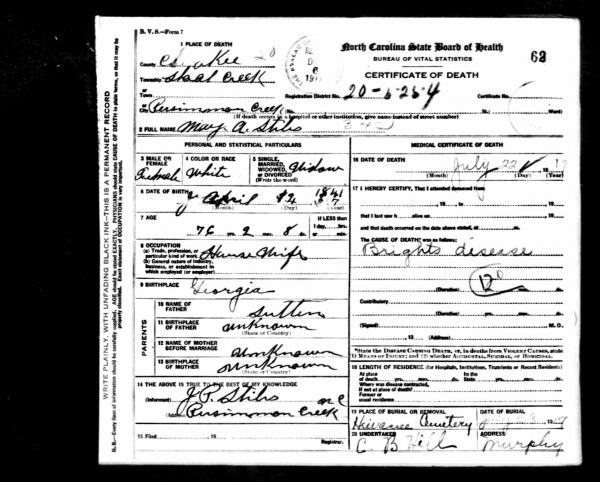 B. V. S.—Form 7
1 PLACE OF DEATH
North Carolina State Board of Health
BUREAU OF VITAL STATISTICS
CERTIFICATE OF DEATH
62
County
Township Shoal Creek
Registration District No. 20-6-25-4 Certificate No.
or Town
or City Persimmon Creek (No. St.; Ward)
(If death occurs in a hospital or other institution, give name instead of street number)
2 FULL NAME Mary A. Stiles
PERSONAL AND STATISTICAL PARTICULARS
3 MALE OR FEMALE Female
4 COLOR OR RACE White
5 SINGLE, MARRIED, WIDOWED, OR DIVORCED (Write the word) Widow
6 DATE OF BIRTH April 1841
(Month) (Day) (Year)
7 AGE
76 yrs. 2 mos. 8 ds.
If LESS than 1 day, hrs.
or min.
8 OCCUPATION
(a) Trade, profession, or particular kind of work House Wife
(b) General nature of industry, business, or establishment in which employed (or employer)
9 BIRTHPLACE Georgia
PARENTS
10 NAME OF FATHER Sutton
11 BIRTHPLACE OF FATHER unknown
(State or Country)
12 NAME OF MOTHER BEFORE MARRIAGE unknown
13 BIRTHPLACE OF MOTHER unknown
(State or Country)
14 THE ABOVE IS TRUE TO THE BEST OF MY KNOWLEDGE
(Informant) J. P. Stiles
Persimmon Creek N C
15 Filed 19
Registrar.
MEDICAL CERTIFICATE OF DEATH
16 DATE OF DEATH July 22 1917
(Month) (Day) (Year)
17 I HEREBY CERTIFY, That I attended deceased from
19 to 19
that I last saw h alive on 19
and that death occurred on the date above stated, at m.
The CAUSE OF DEATH was as follows:
Brights disease
120
(Duration) yrs. mos. ds.
Contributory
(Duration) yrs. mos. ds.
(Signed) M. D.
19 (Address)
*State the DISEASE CAUSING DEATH, or, in deaths from VIOLENT CAUSES, state
1) MEANS OF INJURY; and (2) whether ACCIDENTAL, SUICIDAL, or HOMICIDAL.
18 LENGTH OF RESIDENCE (for Hospitals, Institutions, Transients or Recent Residents)
At place of death yrs. mos. ds. In the State yrs. mos. ds.
Where was disease contracted,
if not at place of death?
Former or usual residence
19 PLACE OF BURIAL OR REMOVAL
Hiwassee Cemetery
DATE OF BURIAL
20 UNDERTAKER
C. B. Hill
ADDRESS
Murphy
WRITE PLAINLY, WITH UNFADING BLACK INK—THIS IS A PERMANENT RECORD
N. B.—Every item of information should be carefully supplied. AGE should be stated EXACTLY. PHYSICIANS should state CAUSE OF DEATH in plain terms, so that it may be
properly classified. Exact statement of OCCUPATION is very important.